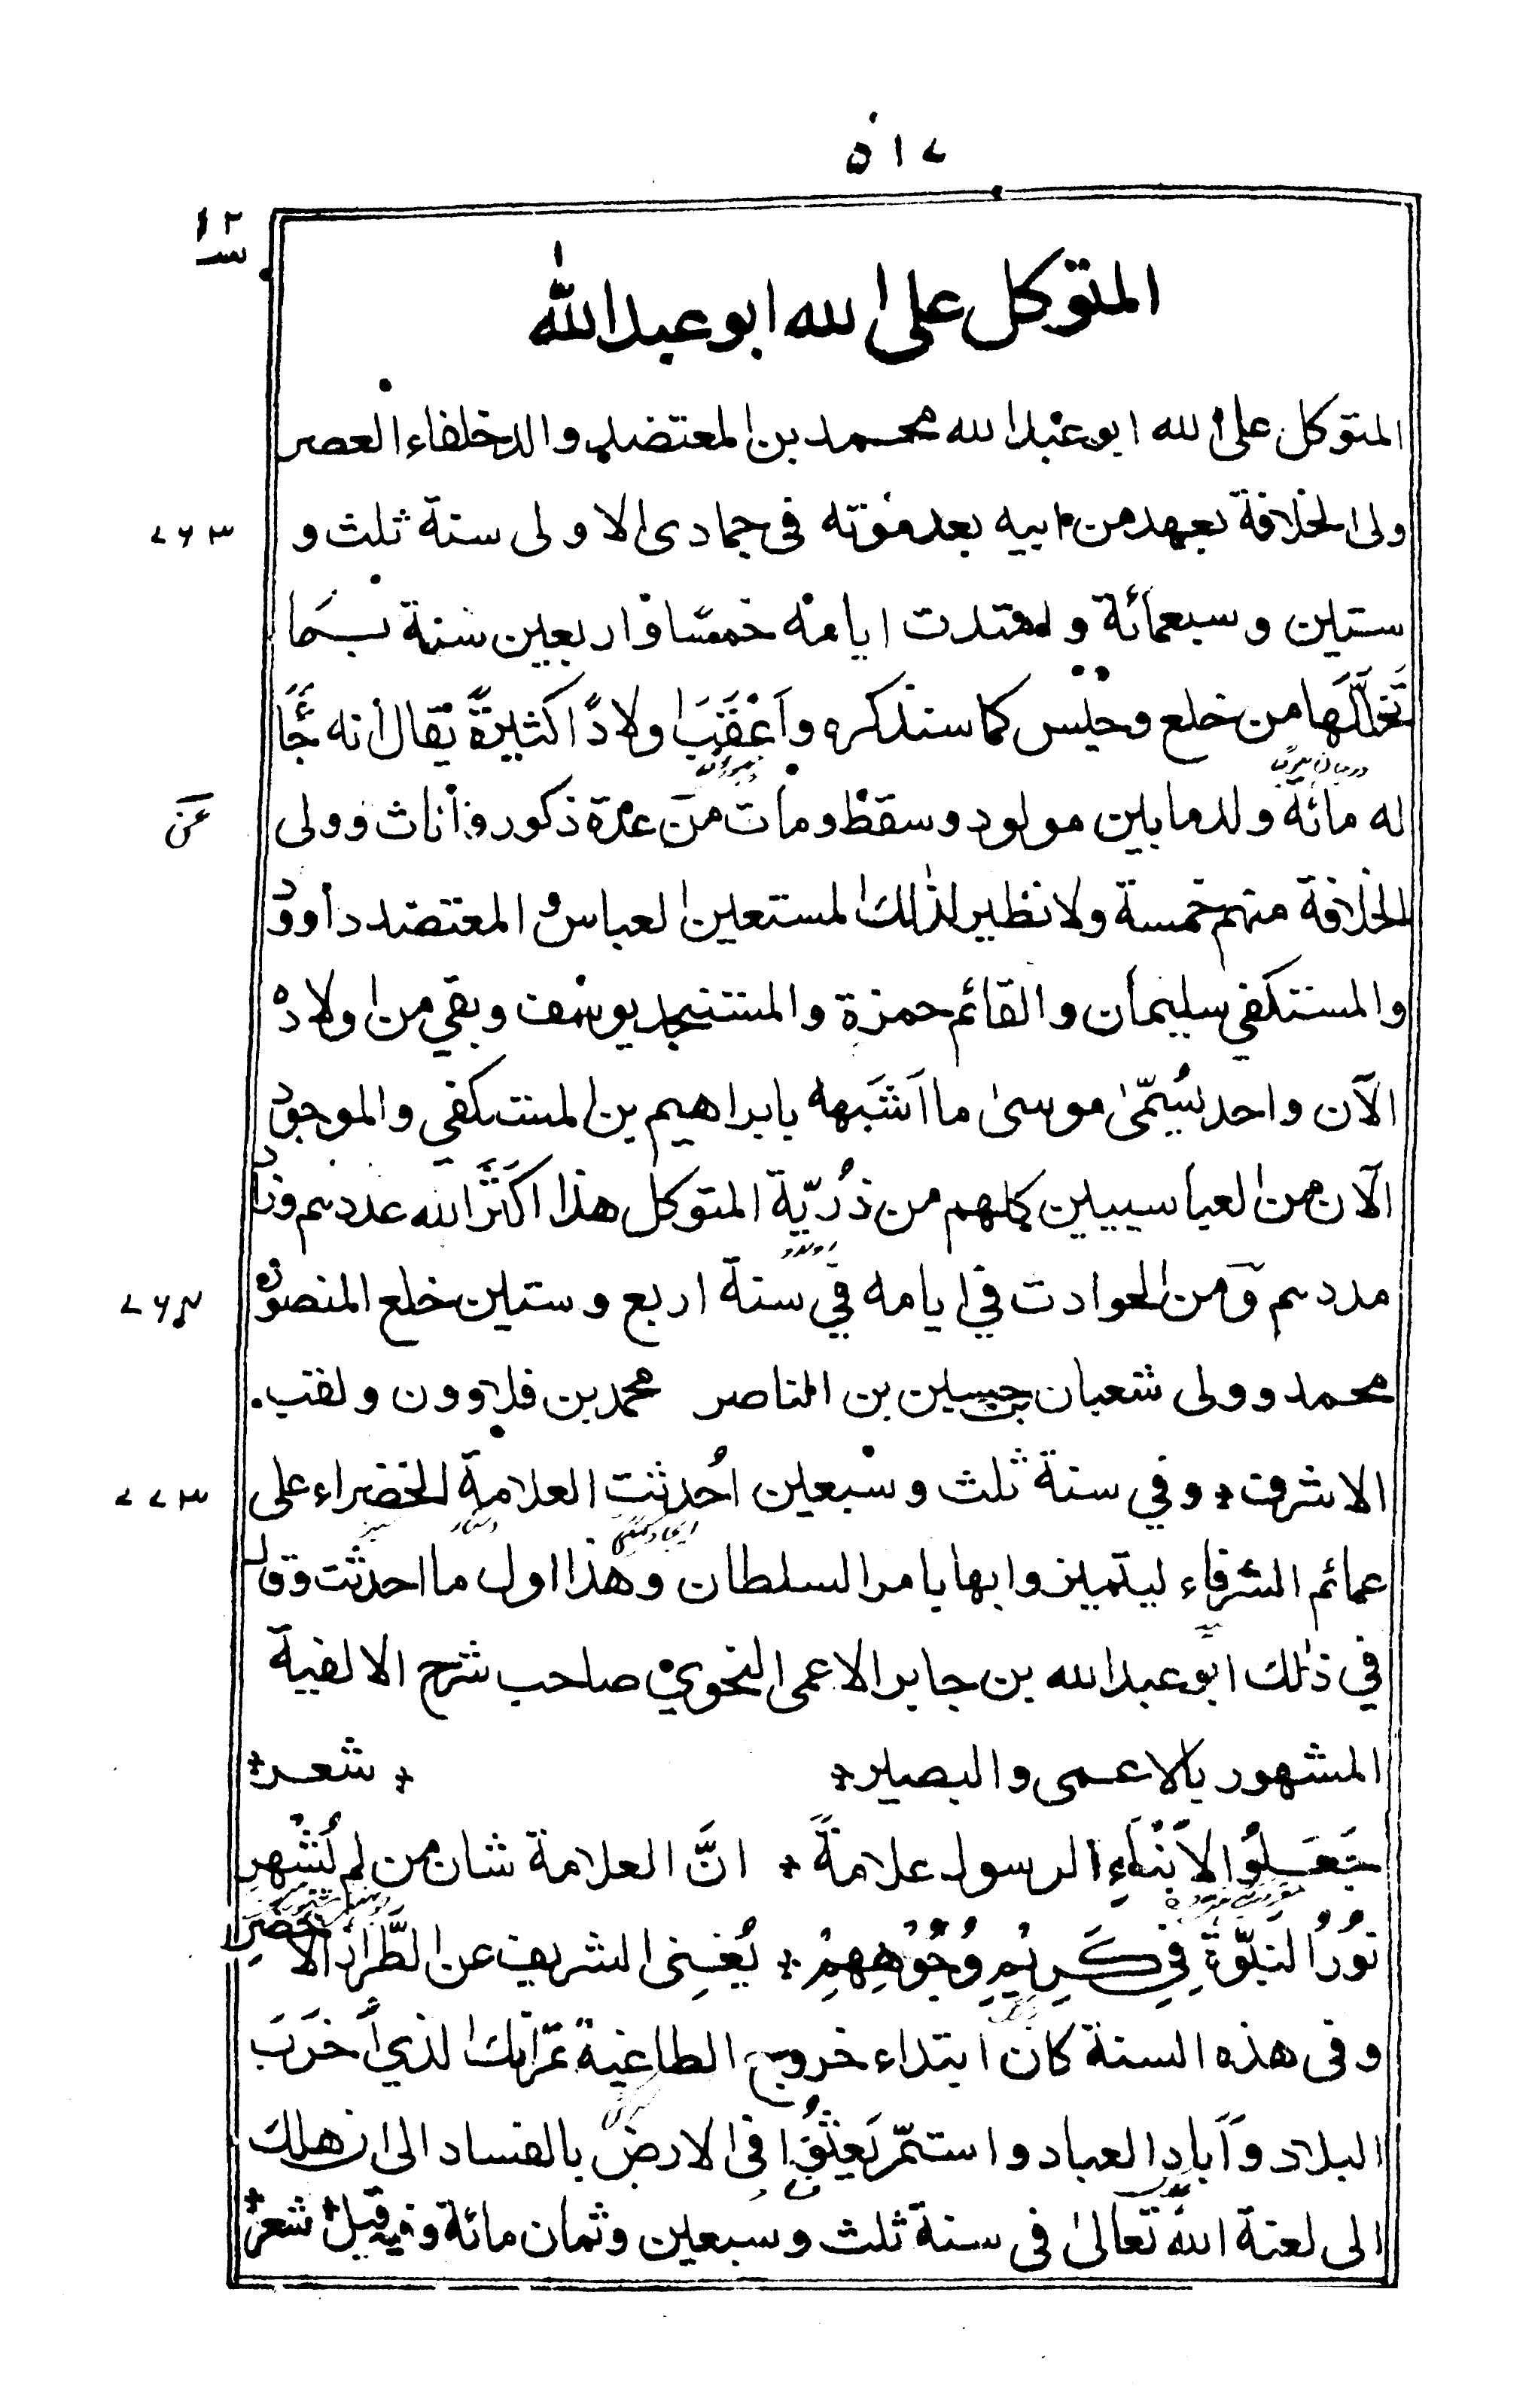 ٥١٧
١٢
المتوكل على الله ابو عبد الله
المتوكل على الله ابو عبد الله محمد بن المعتضد والد خلفاء العصر
ولى الخلافة بعهد من ابيه بعد موته فى جمادى الاولى سنة ثلث و
٧٦٣
ستين و سبعمائة و امتدت ايامه خمسًا و اربعين سنة بما
تَخَلَّلَها من خلع وحبس كما سنذكره واَعْقَبَ اولادًا كثيرةً يقال أنه جَاء
له مائة ولد ما بين مولود وسقط ومات عن عدة ذكور وأناث وولى
عن
الخلافة منهم خمسة ولا نظير لذلك المستعين العباس و المعتضد داوود
والمستكفي سليمان و القائم حمزة و المستنجد يوسف وبقي من اولاده
الآن واحد يُسَمّىٰ موسىٰ ما اَشبَهه بابراهيم بن المستكفي والموجود
الآن من العباسيين كلهم من ذُرِّيّة المتوكل هذا اكثَرَ الله عددهم وزاد
مددهم و من الحوادث في ايامه في سنة اربع و ستين خلع المنصور
٧٦٤
محمد وولى شعبان بن حسين بن الناصر محمد بن قلاوون ولقب
الاشرف * وفي سنة ثلث و سبعين اُحدثت العلامة الخضراء على
٧٧٣
عمائم الشرفاء ليتميزوا بها بامر السلطان وهذا اول ما احدثت وقال
في ذٰلك ابو عبد الله بن جابر الاعمى النحوي صاحب شرح الالفية
المشهور بالاعمى والبصير * * شعر *
جَعَلُوا لاَبْنَاءِ الرسول علامةً * انَّ العلامة شان من لم يُشْهرِ
نُورُ النبوّةِ فِي كَرِيْمِ وُجُوْهِهِمْ * يُغنِى الشريف عن الطَّراز الاخضرِ
وفى هذه السنة كان ابتداء خروج الطاغية تمرلنك الذي أخرَبَ
البلاد واَباد العباد و استمّر يَعْثُوا فى الارض بالفساد الى ان هلك
الى لعنة الله تعالىٰ فى سنة ثلث و سبعين وثمان مائة و فيه قيل * شعر *